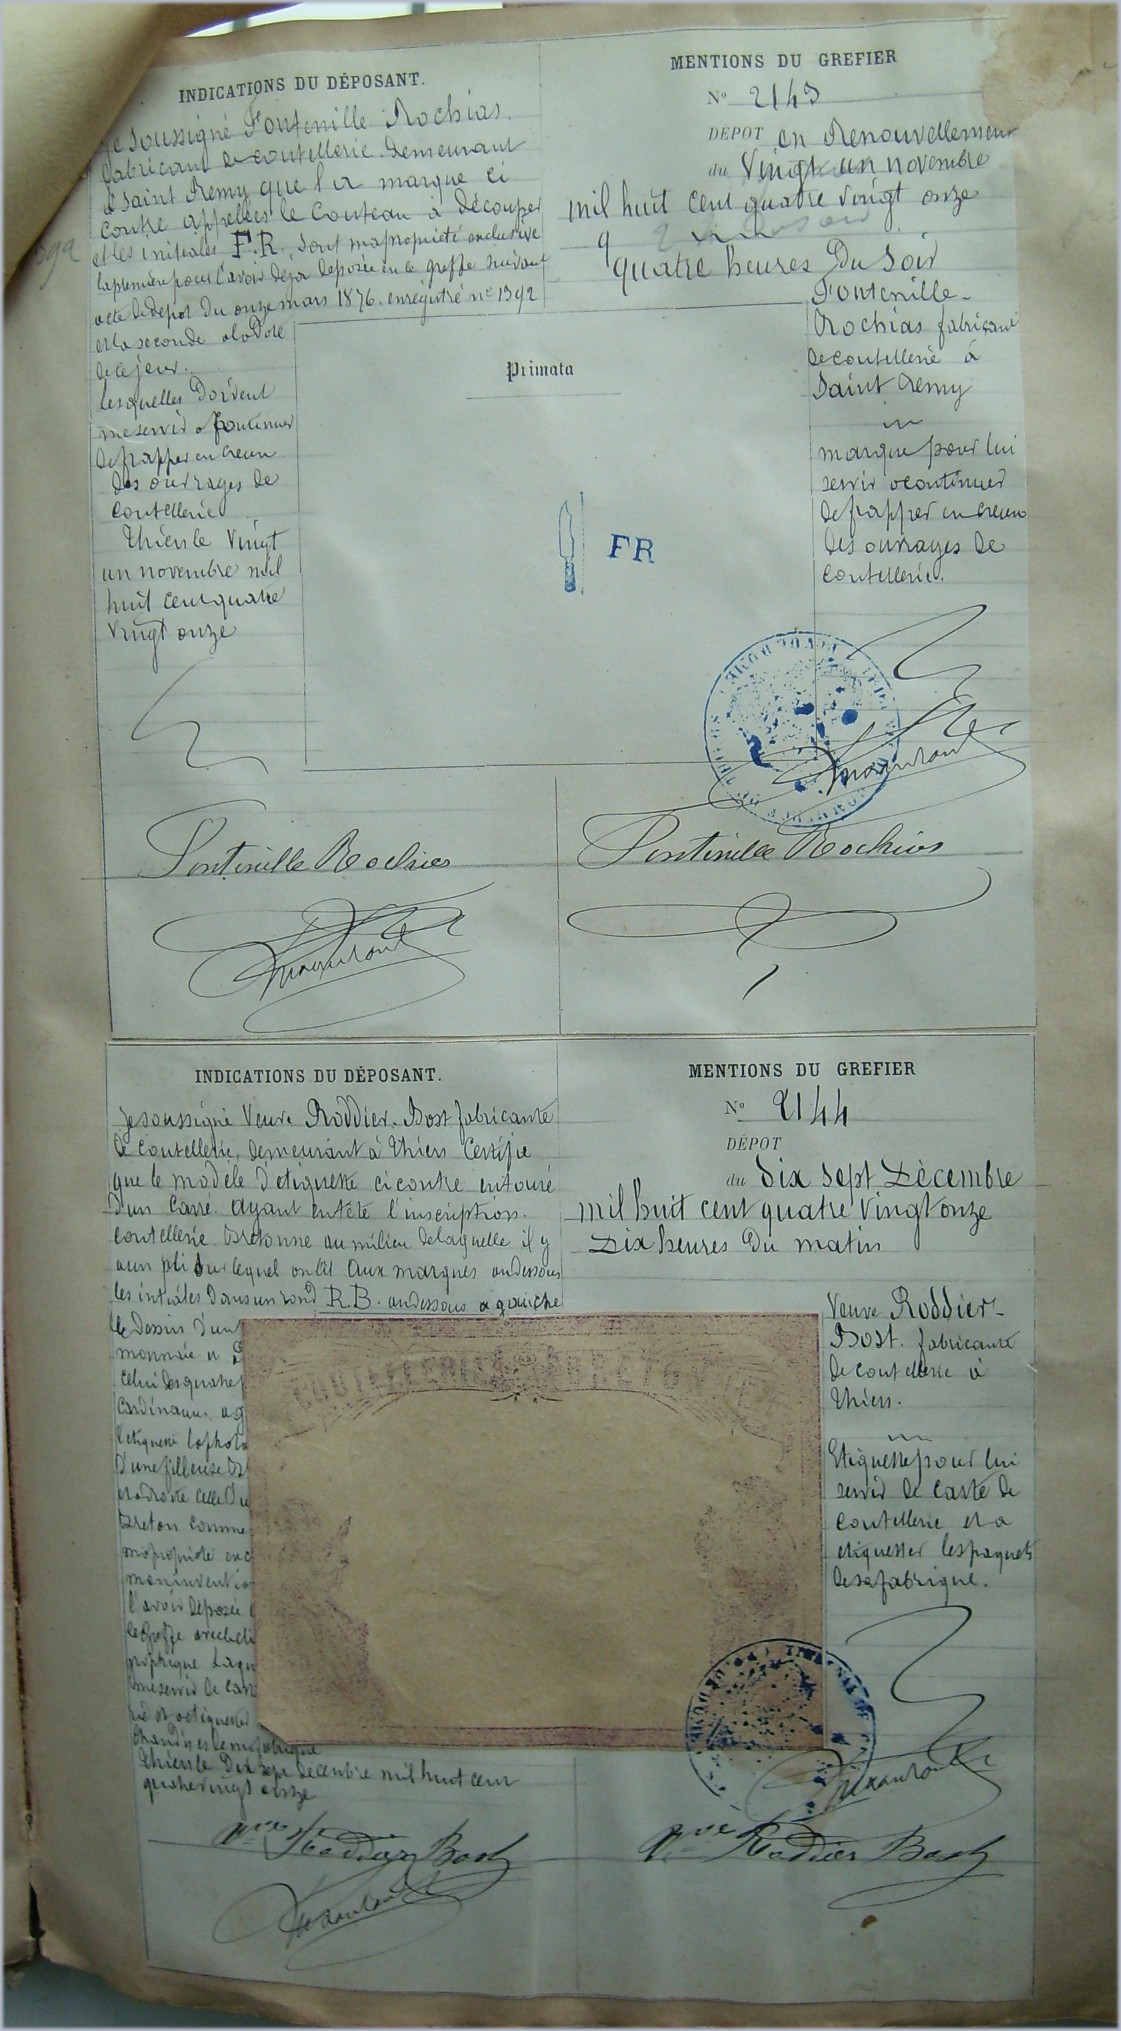 INDICATIONS DU DÉPOSANT.
Je soussigné Fontenille Rochias.
fabricant de coutellerie demeurant
à Saint Remy, que la marque ci
contre appellée le Couteau à Découper
et les initiales F.R. sont ma propriété exclusive
la première pour l'avoir déja deposée au greffe suivant
acte de depot du onze mars 1876. enregistré n° 1392
et la seconde
de ce jour.
lesquelles doivent
me servir a continuer
de frapper en creux
des ouvrages de
coutellerie
Thiers le vingt
un novembre mil
huit cent quatre
vingt onze
MENTIONS DU GREFIER
N° 2143
DÉPOT en Renouvellement
du Vingt un novembre
mil huit cent quatre vingt onze
quatre heures du soir
Fontenille-
Rochias fabricant
de coutellerie à
Saint Remy
marque pour lui
servir a continuer
de frapper en creux
des ouvrages de
coutellerie.
Primata
FR
Fontenille Rochias
Fontenille Rochias
INDICATIONS DU DÉPOSANT.
Je soussigné Veuve Roddier-Bost fabricante
de coutellerie, demeurant à Thiers Certifie
que le modèle d'étiquette ci contre entouré
d'un Carré ayant en tête l'inscription.
coutellerie Bretonne au milieu de laquelle il y
a un pli sur lequel on lit Aux marques au dessous
les initiales dans un rond R.B. au dessous a gauche
le dessin d'un
monnaie
celui des quatre
Cardinaux. a g
l'etiquette la photo
d'une fileuse
et a droite celle du
Breton comme
ma propriété exc
mon inventio
l'avoir déposée
le Greffe
me servir de cart
Thiers le Dix sept Décembre mil huit cent
quatre vingt onze
MENTIONS DU GREFIER
N° 2144
DÉPOT
du Dix sept Décembre
mil huit cent quatre vingt onze
Dix heures du matin
Veuve Roddier-
Bost. fabricante
de coutellerie à
Thiers.
Etiquette pour lui
servir de carte de
coutellerie et a
etiquetter les paquets
de sa fabrique.
COUTELLERIE BRETONNE
Vve Roddier Bost
Vve Roddier Bost